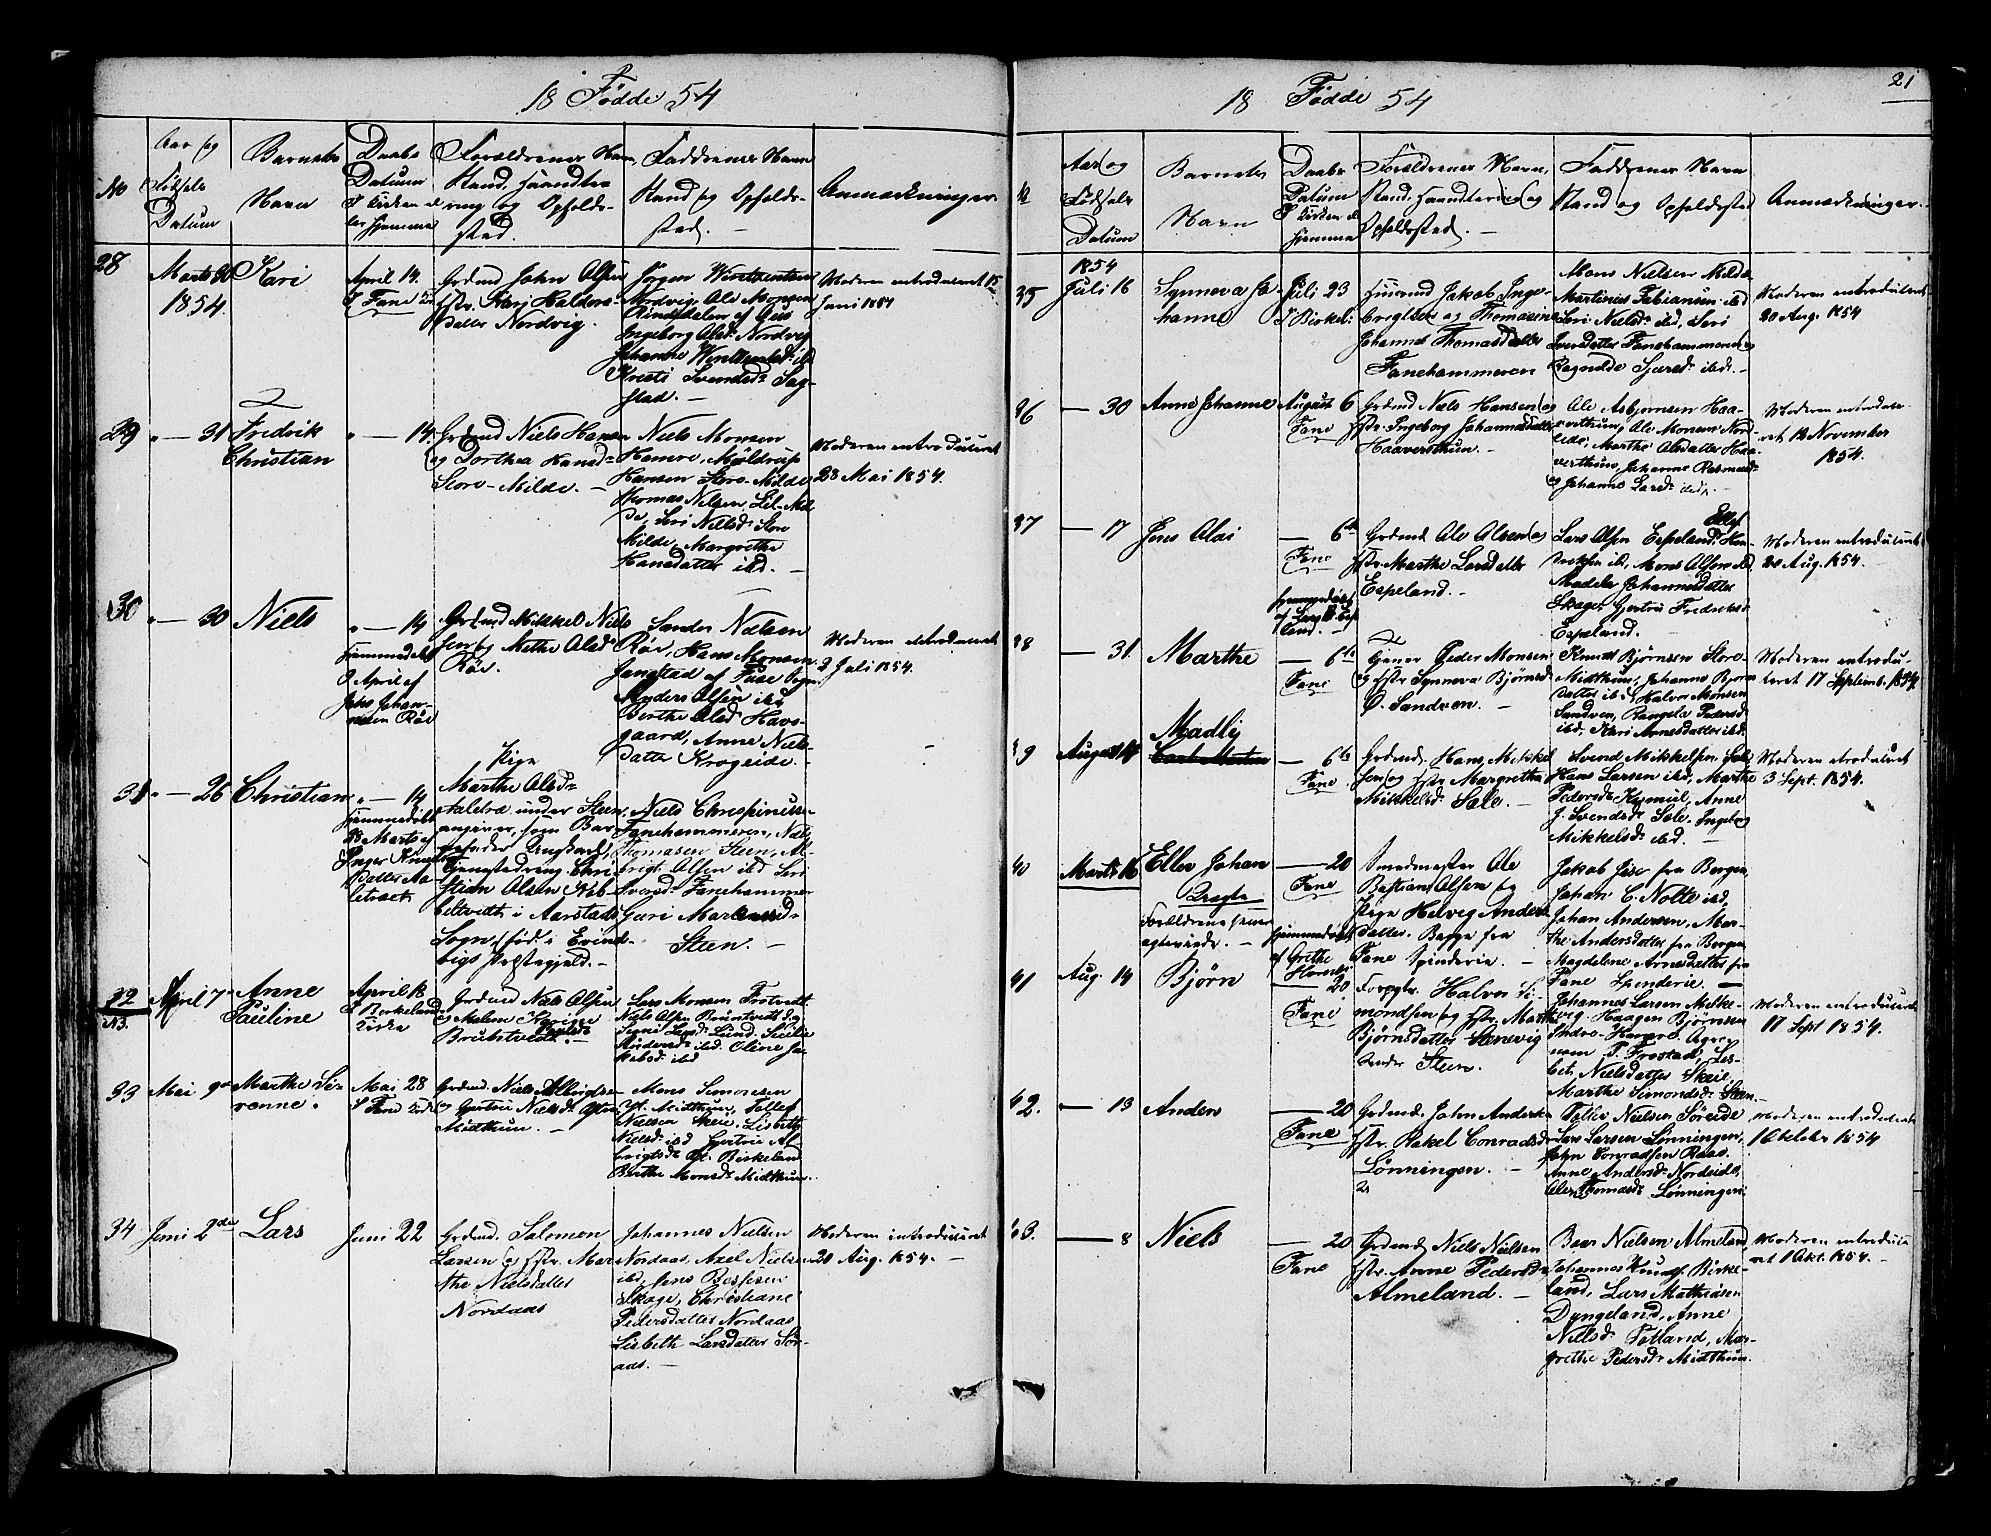 18 Fødde 54
No
Aar og
Fødsels
Datum
Barnets
Navn
Daabs
Datum
I Kirken el
ler hjemme
Forældrenes Navn
Stand, Haandte
ring og Opholds-
sted.
Faddrenes Navn
Stand og Opholds-
sted. —
Anmærkninger
28
Marts 30
1854.
Kari
April 14.
I Fane
Grdmd John Olsen
Kari Haldors-
datter Nordvig.
Jørgen Vinthensen
Nordvig, Ole Monsen
Rindedalen af Øus
Ingeborg Olsd. Nordvig
Johanne Vinthensd. ibd
Kristi Svendsd. Sag-
stad. —
Moderen introduceret 15
Juni 1854
29
" — 31
Fredrik
Christian
" — 14.
Grdmd Niels Hansen
og Dorthea Hansd.
Store-Milde. —
Niels Monsen
Hamre, Møldrup
Hansen Store-Milde
Thomas Nielsen, Lil-Mil
de, Seri Nielsd. Store
Milde, Margrethe
Hansdatter ibd. —
Moderen introduceret
28 Mai 1854.
30
" — 30
Niels
" — 14
hjemmedøbt
9 April af
Johs Johan-
nesen Røe
Grdmd Mikkel Niels
sen og Methe Olsd.
Røe.
Sander Nielsen
Røe, Hans Monsen
Jangstad af Fuse Sogn
Anders Olsen ibd
Berthe Olsd. Havs-
gaard, Anne Niels-
datter Krogeide. —
Moderen introduceret
2 Juli 1854.
31
" — 26
Christian
" — 14
hjemmedøbt
28 Marts af
Inger Knuds
datter Aa-
letræt
Pige
Marthe Olsd.
Aaletræ under Steen,
angiver, som Bar
nefader Ungkarl,
Tjenestedreng Chri-
stian Olsen Kib-
beltvedt i Aarstads
Sogn, fød i Evind-
vigs Præstegjeld. —
Niels Chrispinusse
Fanehammeren, Niels
Thomasen Steen, Al-
brigt Olsen ibd Seri
Iversd. Fanehammer
Guri Martensd.
Steen. —
32
N3.
April 7
Anne
Pauline
April 18
I Birkeland
Kirke
Grdmd Niels Olsen
og Malene Karine
Nielsd.
Brudtvedt. —
Lars Monsen Frotvedt
Niels Olsen Brudtvedt og
33
Mai 9
Marthe Se-
renne.
Mai 28
I Fane Kirke
Grdmd. Niels Albrigtsen
og Gjertrue Nielsd. Ytre
Midthun. —
Mons Simonsen
Yt. Midthun, Tollef
Nielsen Skeie, Lisbeth
Nielsd. ibd Gjertrue Al
brigtsd. Yt. Birkeland
Berthe Monsd. Midthun.
34
Juni 2den
Lars
Juni 22
Grdmd. Salomon
Larsen og Hstr. Mar
the Nielsdatter
Nordaas
Johannes Nielsen
Nordaas, Axel Nielsen
ibd, Jens Bessesen
Skage, Christiane
Pedersdatter Nordaas
Lisbeth Larsdatter Sør-
aas. —
Moderen introduceret
20 Aug. 1854. —
18 Fødde 54
21
Aar og
Fødsels
Datum
Barnets
Navn
Daabs
Datum
I Kirken el
hjemme
Forældrenes Navn,
Stand, Haandtering og
Opholdssted. —
Faddrenes Navn
Stand og Opholdssted
Anmærkninger.
35
1854
Juli 16
Synneva Jo-
hanne
Juli 23
I Birkel.
Husmd Jakob Inge-
brigtsen og Thomasine
Johannes Thomasdatter
Fanehammeren
Mons Nielsen Milde
Martinus Fabiansen ibd
Seri Nielsd. ibd, Seri
Iversdatter Fanehammeren og
Ragnilde Sjursd. ibd. —
Moderen introduceret
20 Aug. 1854
36
— 30
Anne Johanne
August 6
Fane
Grdmd Niels Hansen og
Hstr. Ingeborg Johannesdatter
Haaversthun. —
Ole Asbjørnsen Haa-
versthun, Ole Monsen Nord-
eide, Marthe Olsdatter Haa-
versthun, Johanne Rasmusd.
og Johanne Larsd. ibd. —
Moderen introduce
ret 12 November
1854.
37
— 17
Jens Olai
— 6te
Fane
hjemmedøbt
Grdmd Ole Olsen og
Hstr. Marthe Larsdatter
Espeland. —
Ellef
Lars Olsen Espeland, Hen-
driksen ibd, Mons Olsen ibd
Madele Johannesdatter
Skage, Gjertru Fredriksd.
Espeland. —
Moderen introduceret
20 Aug. 1854. —
38
— 31
Marthe
— 6te
Fane
Tjener Peder Monsen
og Hstr. Synneva Bjørnsd.
Ø. Sandven. —
Knud Bjørnsen Store-
Midthun, Johanne Bjørns
datter ibd, Halvor Monsen
Sandven, Rangela Pedersd.
ibd, Kari Arnesdatter ibd.
Moderen introdu-
ceret 17 Septemb. 1854.
39
August 14
Madli
— 6te
Fane
Grdmd. Hans Mikkel
sen og Hstr. Margrethe
Mikkelsd. Sæle. —
Svend Mikkelsen Sæle
Hans Larsen ibd, Marthe
Pedersd. Kismul, Anne
J. Svendsd. Sæle, Ingeborg
Mikkelsd. ibd. —
Moderen introduceret
3 Sept. 1854.
40
Marts 16
Ellen Johan
Forældrene senere
— 20
Fane
hjemmedøbt
af Grethe
Smedmester Ole
Bastian Olsen og
Pige Helvig Anders
datter. Begge fra
Fane Spinderie. —
Jakob Giær fra Bergen
Johan C. Nolte ibd,
Johan Andersen, Mar-
the Andersdatter fra Bergen
Magdelene Arnesdatter fra
Fane Spinderie. —
41
Aug. 14
Bjørn
— 20
Fane
Forpgtr. Halvor Si-
mondsen og Hstr. Marthe
Bjørnsdatter Stenevig
under Steen.
Johannes Larsen Milde-
vig, Haagen Bjørnsen
Indre-Haugre, Ager-
Marthe Simondsd. Steen
Moderen introduceret
17 Sept 1854.
42.
— 13
Anders
— 20
Fane
Grdmd. John Anders
Hstr. Rakel Conradsd.
Lønningen. —
Tollev Nielsen Søreide
Lars Larsen Lønningen,
John Conradsen Raae
Anne Andersd. Nordeide,
Ole Thomasd. Lønningen
Moderen introduceret
1 October 1854
43.
— 8
Niels
— 20
Fane
Grdmd. Niels Nielsen
Hstr. Anne Pedersd.
Almeland. —
Baar Nielsen Almeland,
Johannes Knuds. Birke-
land, Lars Mathiasen
Dyngeland, Anne
Nielsd. Totland, Mar-
grethe Pedersd. Midthun.
Moderen introduce
ret 1 Okt. 1854. —